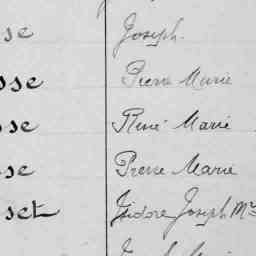 se Joseph.
sse Pierre Marie
sse René Marie
sse Pierre Marie
set Isidore Joseph Mie